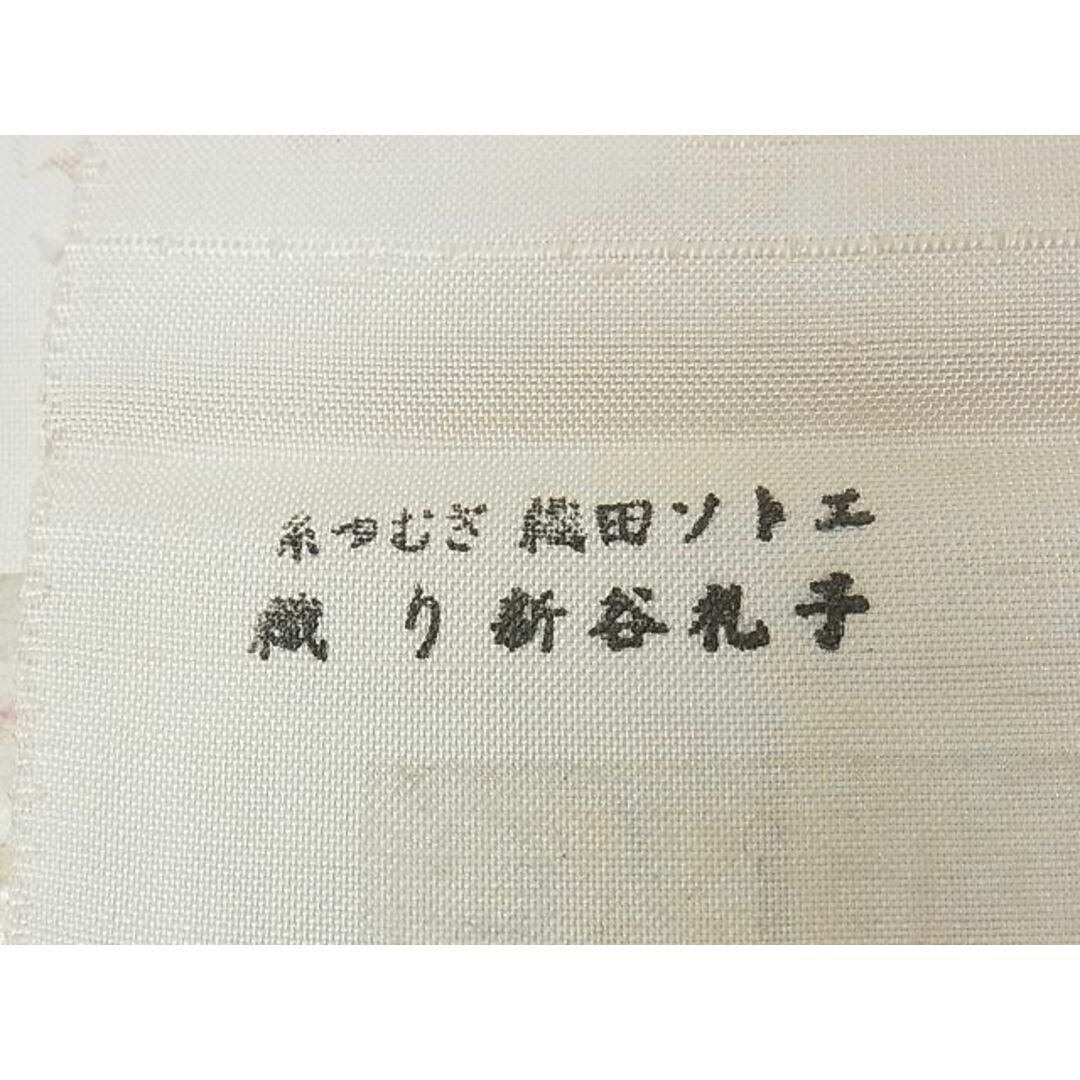 糸つむぎ 織田ソトエ
織り 新谷礼子